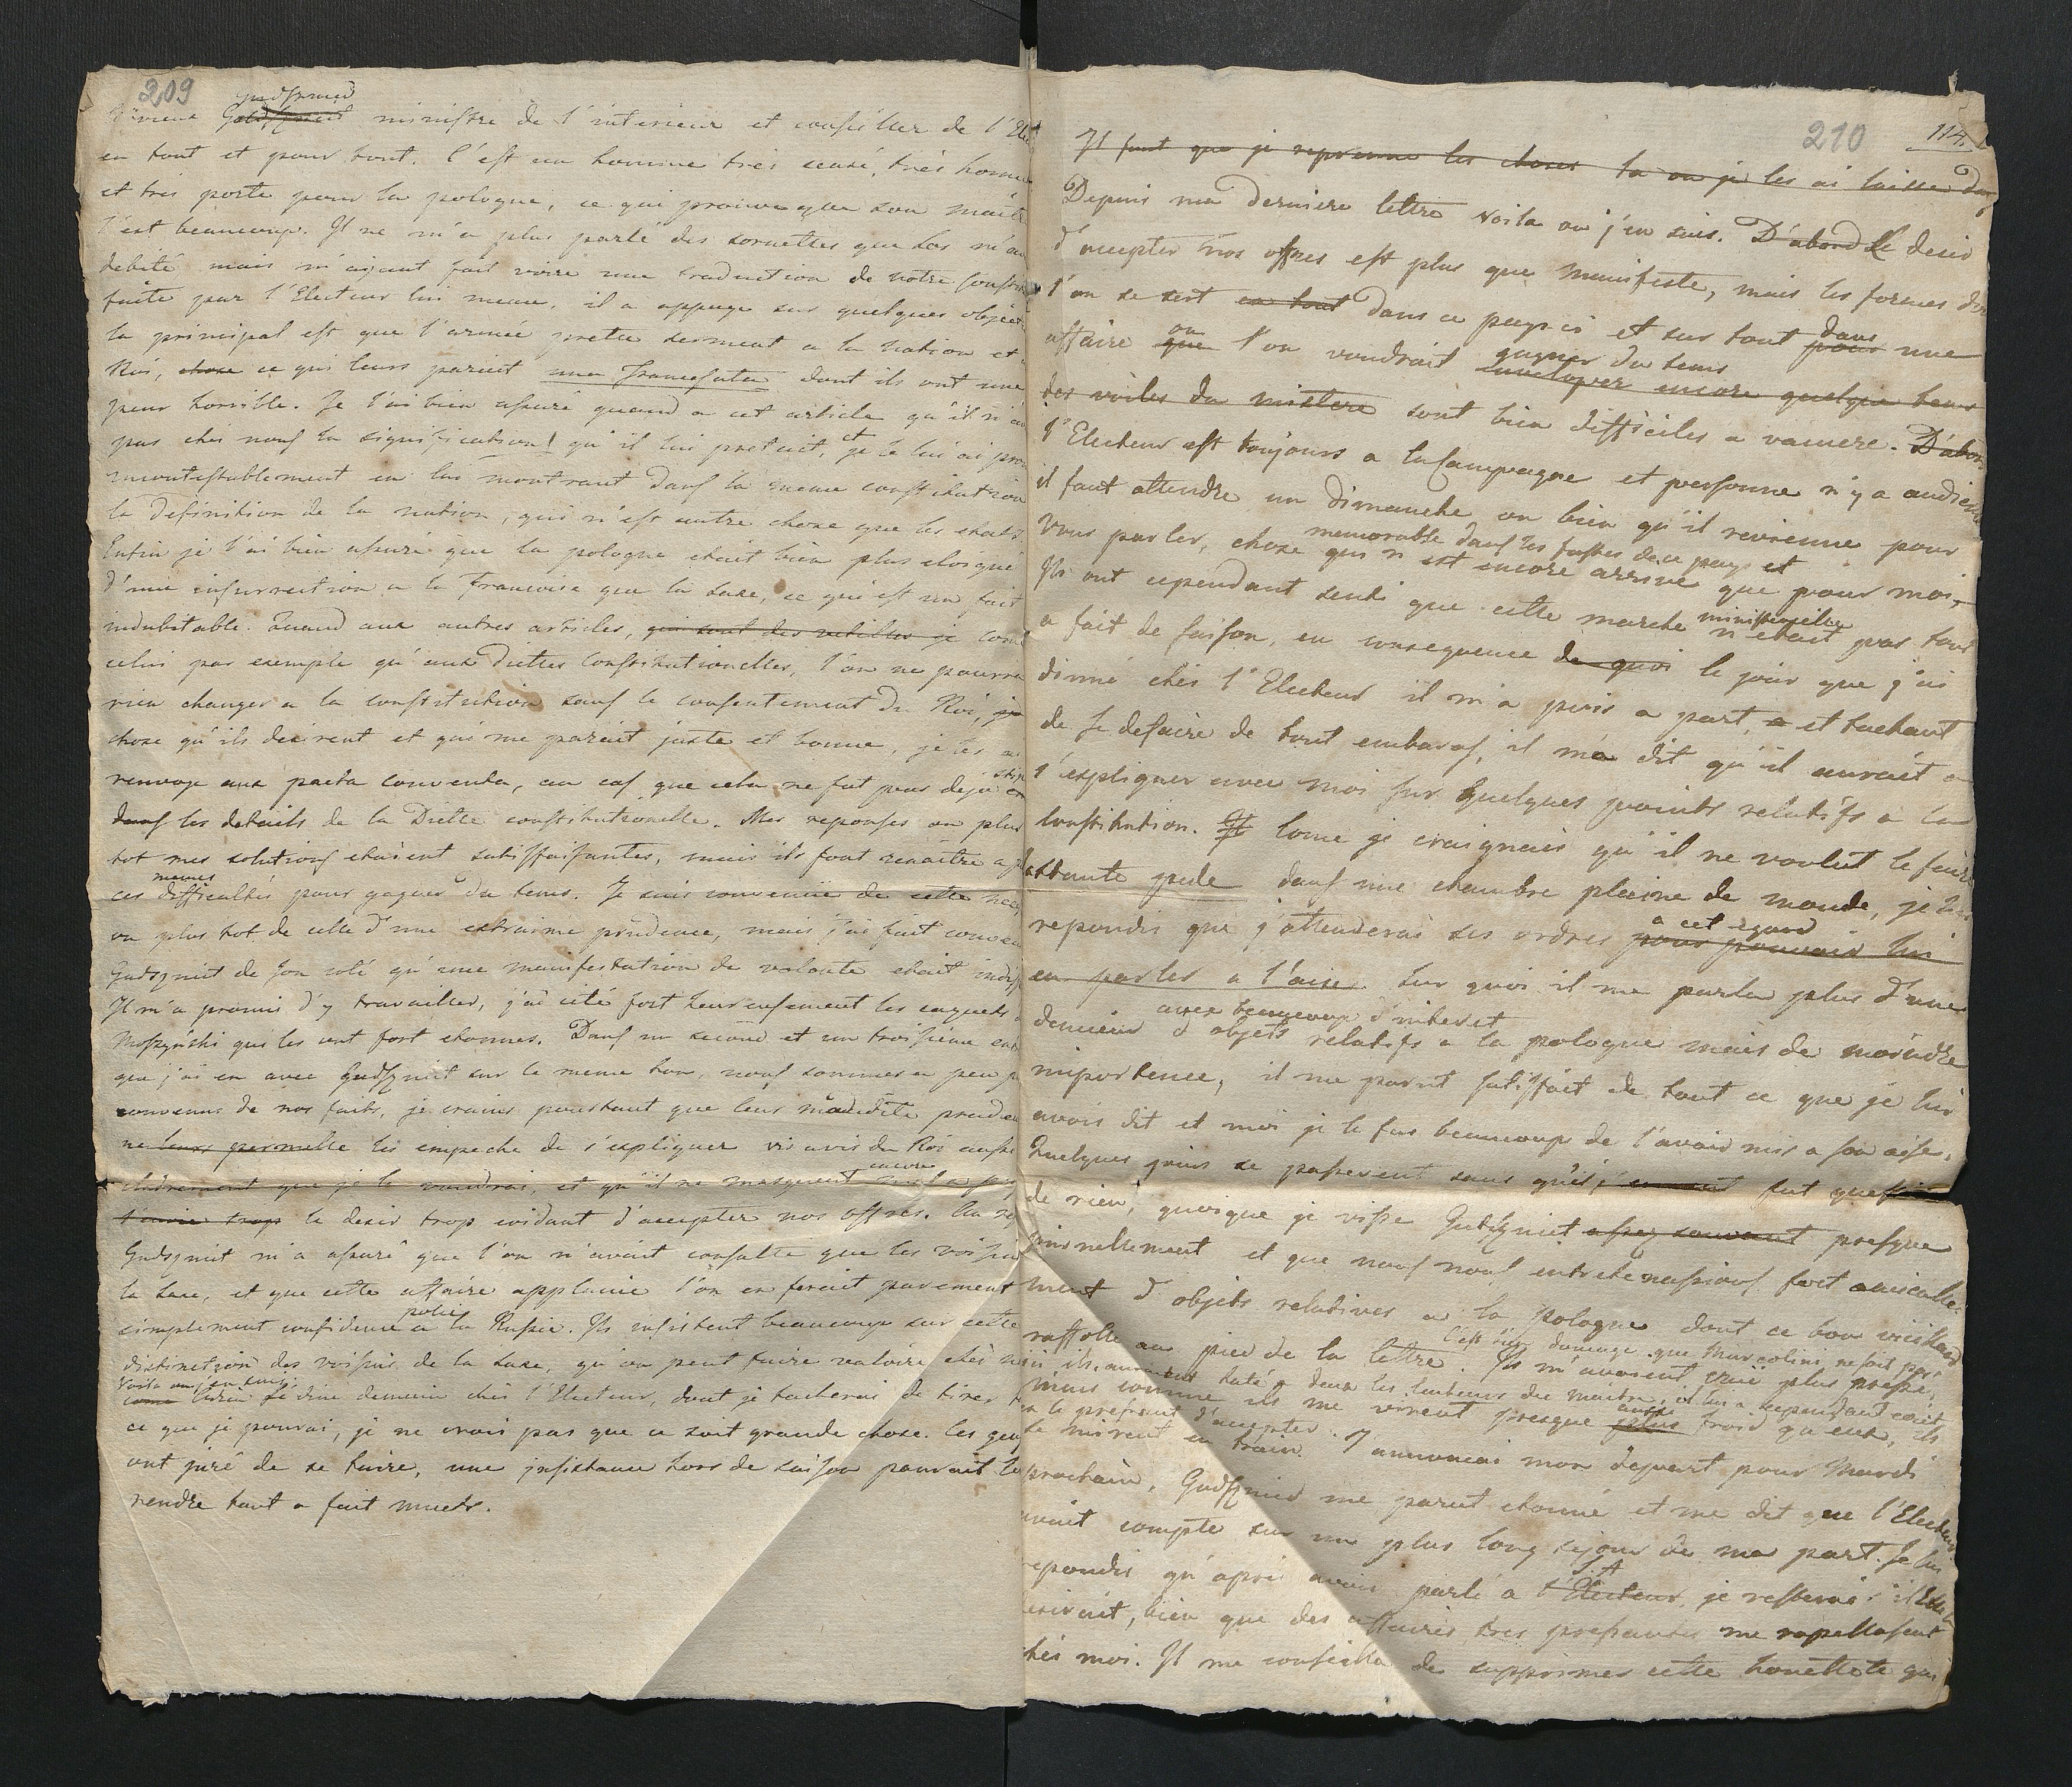 209
Gudszmid
vieux ministre de l'interieur et conseiller de l'Elec
en tout et pour tout. C'est un homme très censé, très honne
et très porté pour la pologne, ce qui prouve que son maitre
l'est beaucoup. Il ne m'a plus parlé des sornettes que Los m'a
debité mais m'ayant fait voire une traduction de notre Constit
faite par l'Electeur lui meme, il a appuye sur quelques object
la principal est que l'armée prette serment a la nation et a
Roi, chose ce qui leurs parait dont ils ont une
peur horrible. Je l'ai bien assuré quand a cet article qu'il n'a
pas chés nous la signification qu'il lui pretait, et je le lui ai prou
incontestablement en lui montrant dans la meme constitution
la definition de la nation, qui n'est autre chose que les etats.
Enfin je l'ai bien assuré que la pologne etait bien plus eloigné
d'une insurrection a la Francoise que la Saxe, ce qui est un fait
indubitable. Quand aux autres articles, qui sont des come
celui par exemple qu'aux Diettes Constitutionelles, l'on ne pourra
rien changer a la constitution sauf le consentement du Roi, je
chose qu'ils desirent et qui me parait juste et bonne, je les ai
renvoye aux pacta conventa, au cas que cela ne fut pas deja
dans les details de la Diette constitutionelle. Mes reponses ou plus
tot mes solutions etaient satisfaisantes, mais ils font renaitre a
memes
ces difficultés pour gagner du tems. Je suis convenue de cette
ou plus tot de celle d'une extraime prudence, mais j'ai fait conven
Gudszmit de son coté qu'une manifestation de volonte etait indis
Il m'a promis d'y travailler, j'ai cité fort heureusement les
Moszyński qui les ont fort etonnes. Dans un second et un troisieme
que j'ai eu avec Gudszmit sur le meme ton, nous sommes a peu p
convenus de nos faits, je crains pourtant que leur prudence
ne leurs permette les empeche de s'expliquer vis avis du Roi aussi
encore
clairement que je le voudrai, et qu'il ne masquent
trop le desir trop evidant d'accepter nos offres. Au re
Gudszmit m'a assuré que l'on n'avait consulté que les voisins
la Saxe, et que cette affaire applanie l'on en ferait purement
polie
simplement confidence a la Russie. Ils insistent beaucoup sur cette
distinction des voisins de la Saxe, qu'on peut faire valoire chés n
Voila ou j'en suis.
Je dine demain chés l'Electeur, dont je tacherai de tirer
ce que je pourai, je ne crois pas que ce soit grande chose. Ces gens
ont juré de se taire, une insistance hors de saison pourait les
rendre tout a fait muets.
210
114
Il faut que je reprenne les choses la ou je les ai laissé dans
Depuis ma derniere lettre voila ou j'en suis. D'abord Le desir
d'accepter nos offres est plus que manifeste, mais les formes dont
l'on se sert en tout dans ce pays ci et sur tout pour dans une
affaire que ou l'on voudrait gagner du tems enveloper encore quelque tems
des voiles du mistere sont bien difficiles a vaincre. D'abord
l'Electeur est toujours a la Campagne et personne n'y a audience
il faut attendre un dimanche ou bien qu'il revienne pour
memorable dans les fastes de ce pays et
vous parler, chose qui n'est encore arrivé que pour moi,
Ils ont cependant senti que cette marche ministerielle n'etait pas tout
a fait de saison, en consequence de quoi le jour que j'ai
dinné chés l'Electeur il m'a pris a part, et tachant
de se defaire de tout embaras, il m'a dit qu'il aurait a
s'expliquer avec moi sur quelques points relatifs a la
Constitution. Come je craignais qu'il ne voulut le faire
dans une chambre plaine de monde, je lui
a cet egard
repondis que j'attenderai ses ordres pour pouvoir lui
en parler a l'aise. Sur quoi il me parla plus d'une
avec beaucoup d'interet
demieur d'objets relatifs a la pologne mais de moindre
importence, il me parut satisfait de tout ce que je lui
avois dit et moi je le fus beaucoup de l'avoir mis a son aise.
Quelques jours se passerent sans qu'il fut question
de rien, quoique je visse Gudszmit assez souvent presque
journellement et que nous nous entretenassions fort amicale
ment d'objets relatives a la pologne dont ce bon vieillard
raffolle au pied de la lettre. Ils m'avaient cru plus pressé,
C'est bien domage que Marcolini ne soit pas
ici ils auraient taté a deux les du maitre, il lui a cependant ecrit
mais comme ils me virent presque plus aussi froid qu'eux, ils
en le pressant d'accepter.
se mirent en train. J'annoncai mon depart pour Mardi
prochain, Gudszmid me parut etonné et me dit que l'Electeur
avait compté sur un plus long sejour de ma part. Je lui
repondis qu'aprés avoir parlé a l'Electeur S.A. je resterai s'il le
desirait, bien que des affaires tres pressantes me rapellassent
chés moi. Il me conseilla de supprimer cette honetteté qui